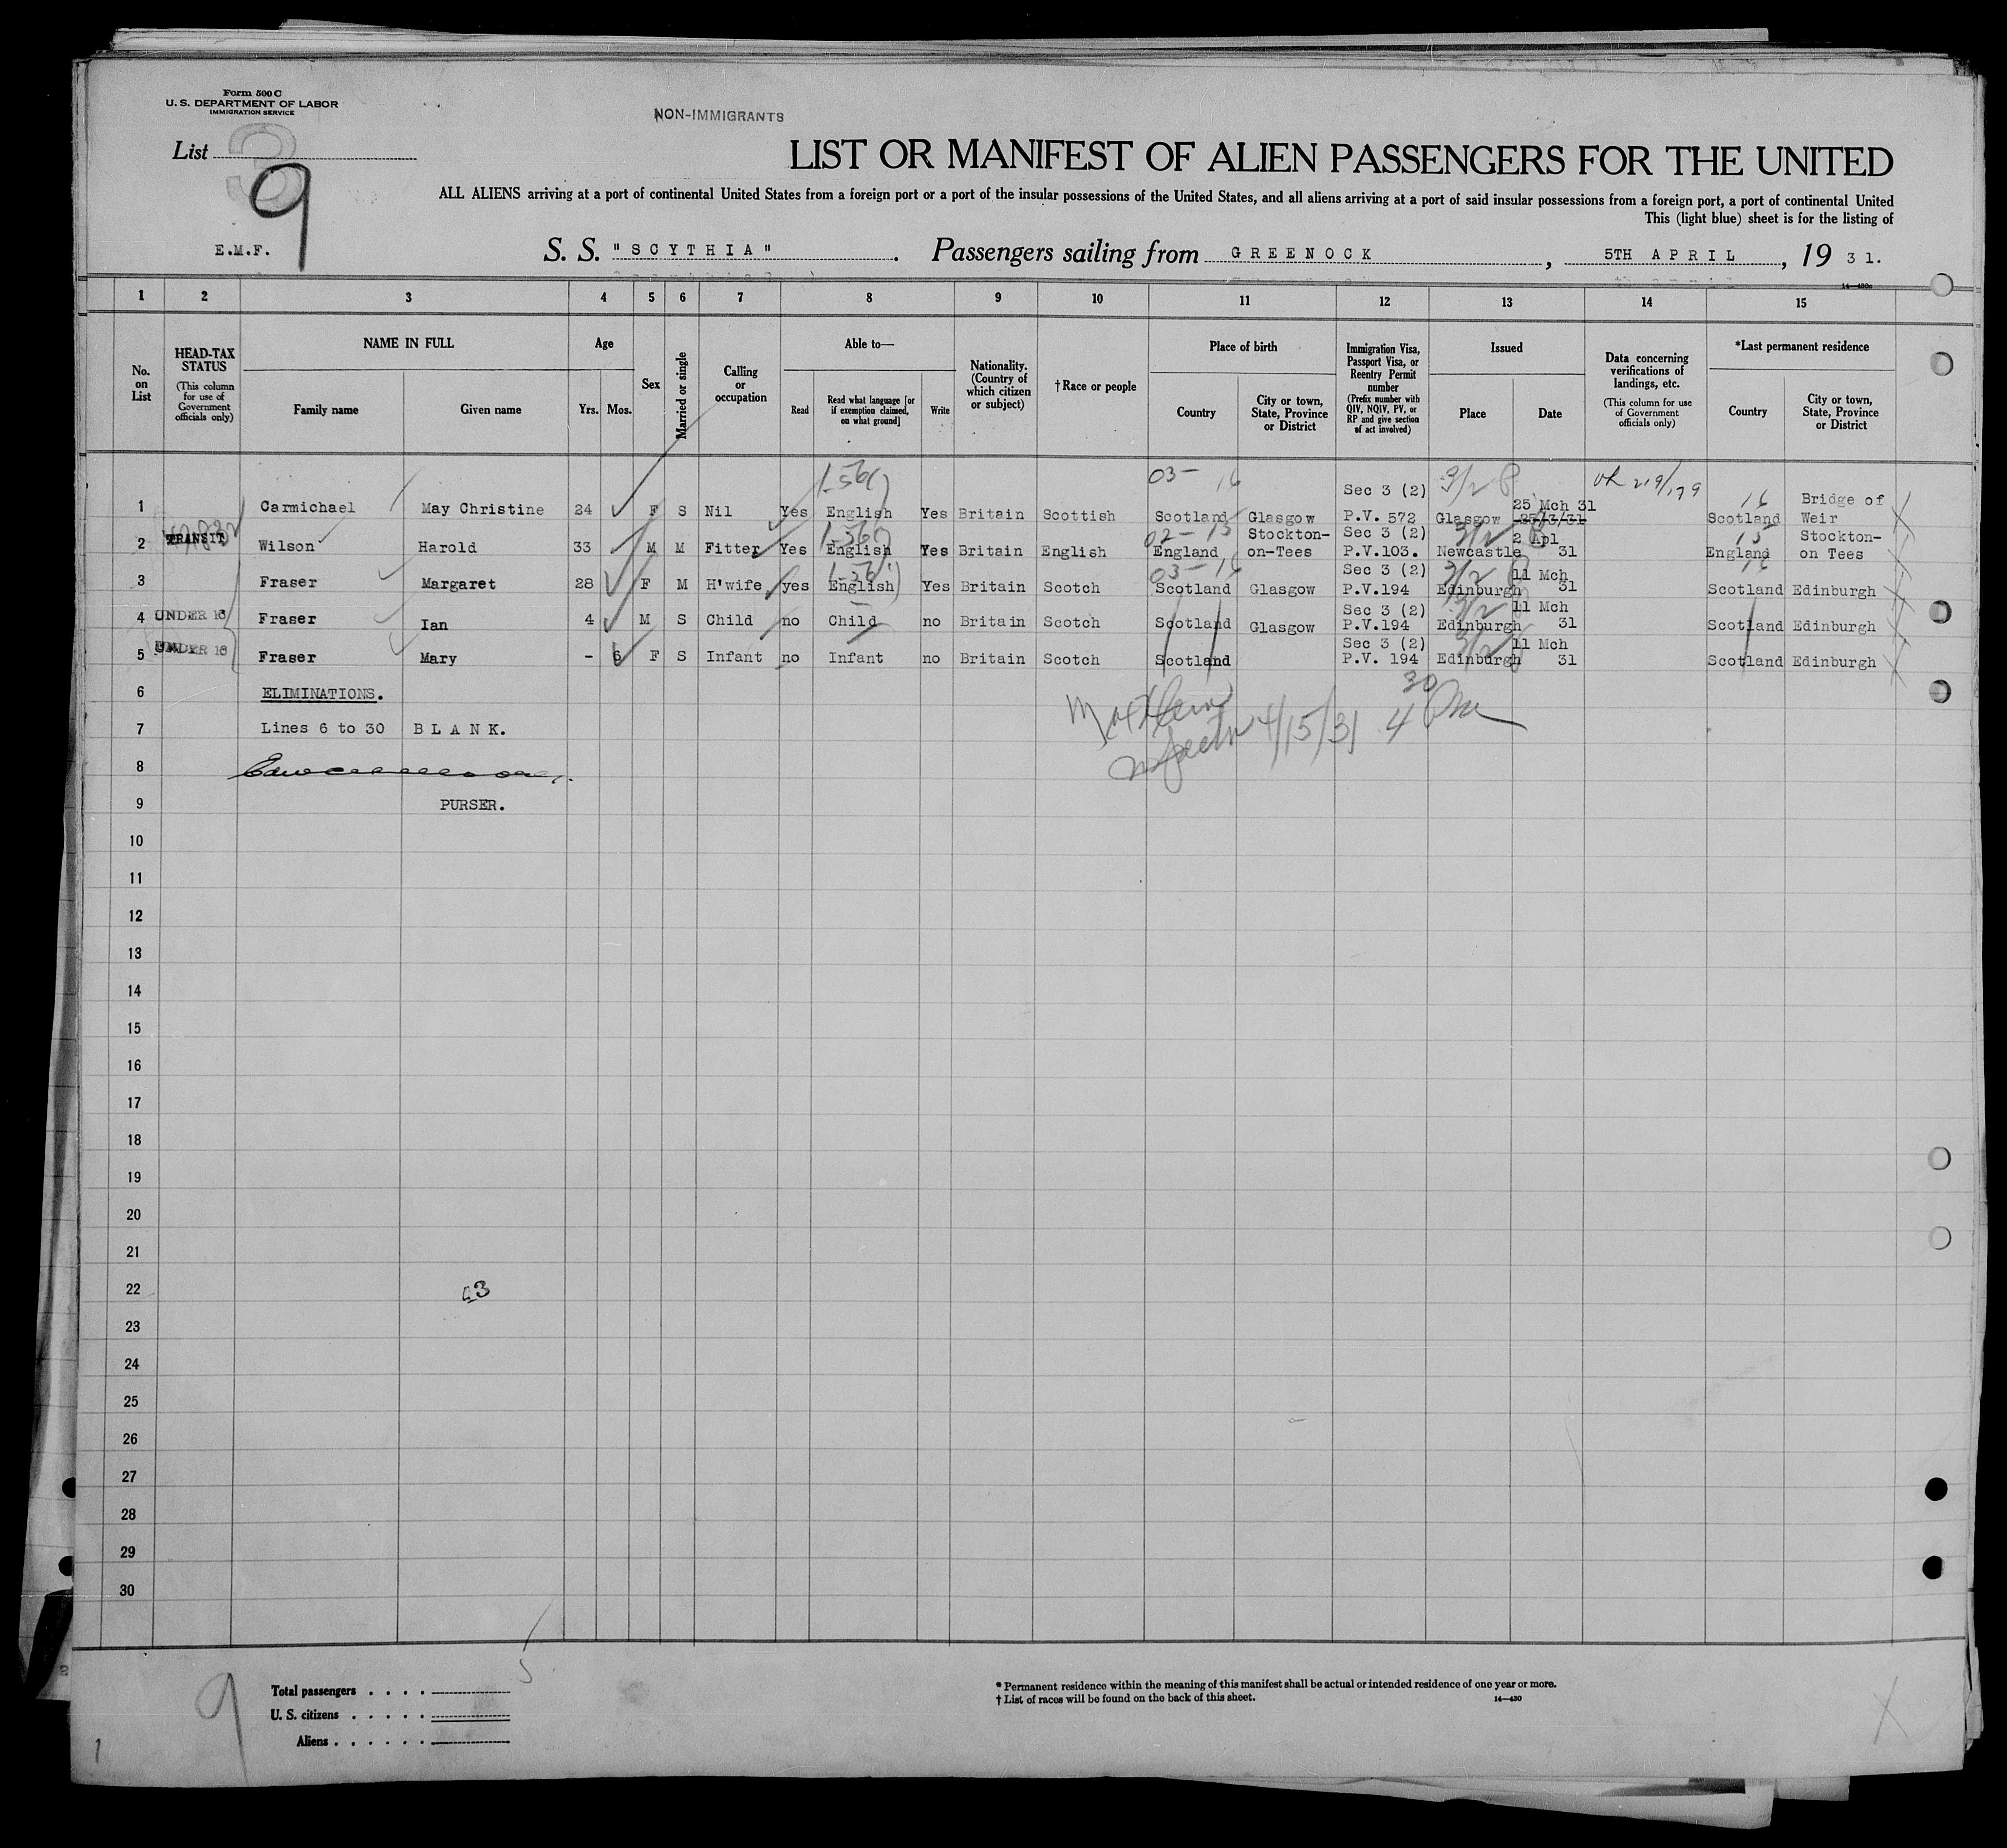 Form 500 C
U. S. DEPARTMENT OF LABOR
IMMIGRATION SERVICE
NON-IMMIGRANTS
List
9
LIST OR MANIFEST OF ALIEN PASSENGERS FOR THE UNITED
ALL ALIENS arriving at a port of continental United States from a foreign port or a port of the insular possessions of the United States, and all aliens arriving at a port of said insular possessions from a foreign port, a port of continental United
This (light blue) sheet is for the listing of
E.M.F.
S. S. "SCYTHIA". Passengers sailing from GREENOCK, 5TH APRIL, 19 31.
14—430a
1 2 3 4 5 6 7 8 9 10 11 12 13 14 15
No. on List
HEAD-TAX STATUS (This column for use of Government officials only)
NAME IN FULL
Family name
Given name
Age
Yrs. Mos.
Sex
Married or single
Calling or occupation
Able to—
Read
Read what language [or if exemption claimed, on what ground]
Write
Nationality. (Country of which citizen or subject)
†Race or people
Place of birth
Country
City or town, State, Province or District
Immigration Visa, Passport Visa, or Reentry Permit number (Prefix number with QIV, NQIV, PV, or RP and give section of act involved)
Issued
Place
Date
Data concerning verifications of landings, etc. (This column for use of Government officials only)
*Last permanent residence
Country
City or town, State, Province or District
03- 16
1 Carmichael May Christine 24 F S Nil Yes English Yes Britain Scottish Scotland Glasgow Sec 3 (2) P.V. 572 Glasgow 25 Mch 31 25/3/31 219/179 16 Scotland Bridge of Weir
02-15
2 TRANSIT Wilson Harold 33 M M Fitter Yes English Yes Britain English England Stockton-on-Tees Sec 3 (2) P.V.103. Newcastle 2 Apl 31 15 England Stockton-on Tees
03-16
3 Fraser Margaret 28 F M H'wife yes English Yes Britain Scotch Scotland Glasgow Sec 3 (2) P.V.194 Edinburgh 11 Mch 31 16 Scotland Edinburgh
4 UNDER 16 Fraser Ian 4 M S Child no Child no Britain Scotch Scotland Glasgow Sec 3 (2) P.V.194 Edinburgh 11 Mch 31 Scotland Edinburgh
5 UNDER 16 Fraser Mary - F S Infant no Infant no Britain Scotch Scotland Sec 3 (2) P.V. 194 Edinburgh 11 Mch 31 Scotland Edinburgh
6 ELIMINATIONS.
7 Lines 6 to 30 BLANK.
4/15/31 4 30 Pm
8
9 PURSER.
10
11
12
13
14
15
16
17
18
19
20
21
22
23
24
25
26
27
28
29
30
5
9
Total passengers . . . .
U. S. citizens . . . . .
Aliens . . . . . .
* Permanent residence within the meaning of this manifest shall be actual or intended residence of one year or more.
† List of races will be found on the back of this sheet.
14—430
1